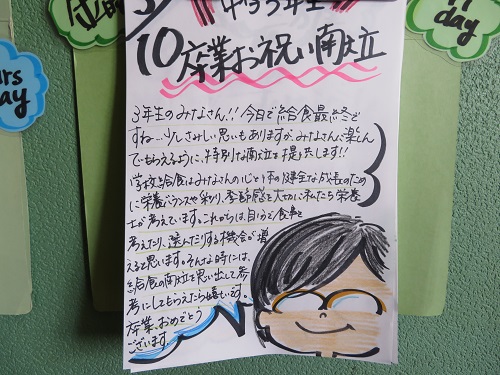 中学3年生
10 卒業お祝い献立
3年生のみなさん!! 今日で給食最終で
すね…少しさみしい思いもありますが、みなさんに楽しん
でもらえるように、特別な献立を提供します!!
学校給食はみなさんの心と体の健全な成長のため
に栄養バランスや彩り、季節感を大切に私たち栄養
士が考えています。これからは、自分で食事を
考えたり、選んだりする機会が増
えると思います。そんな時には、
給食の献立を思い出して参
考にしてもらえたら嬉しいです。
卒業、おめでとう
ございます。
day
urs
ay